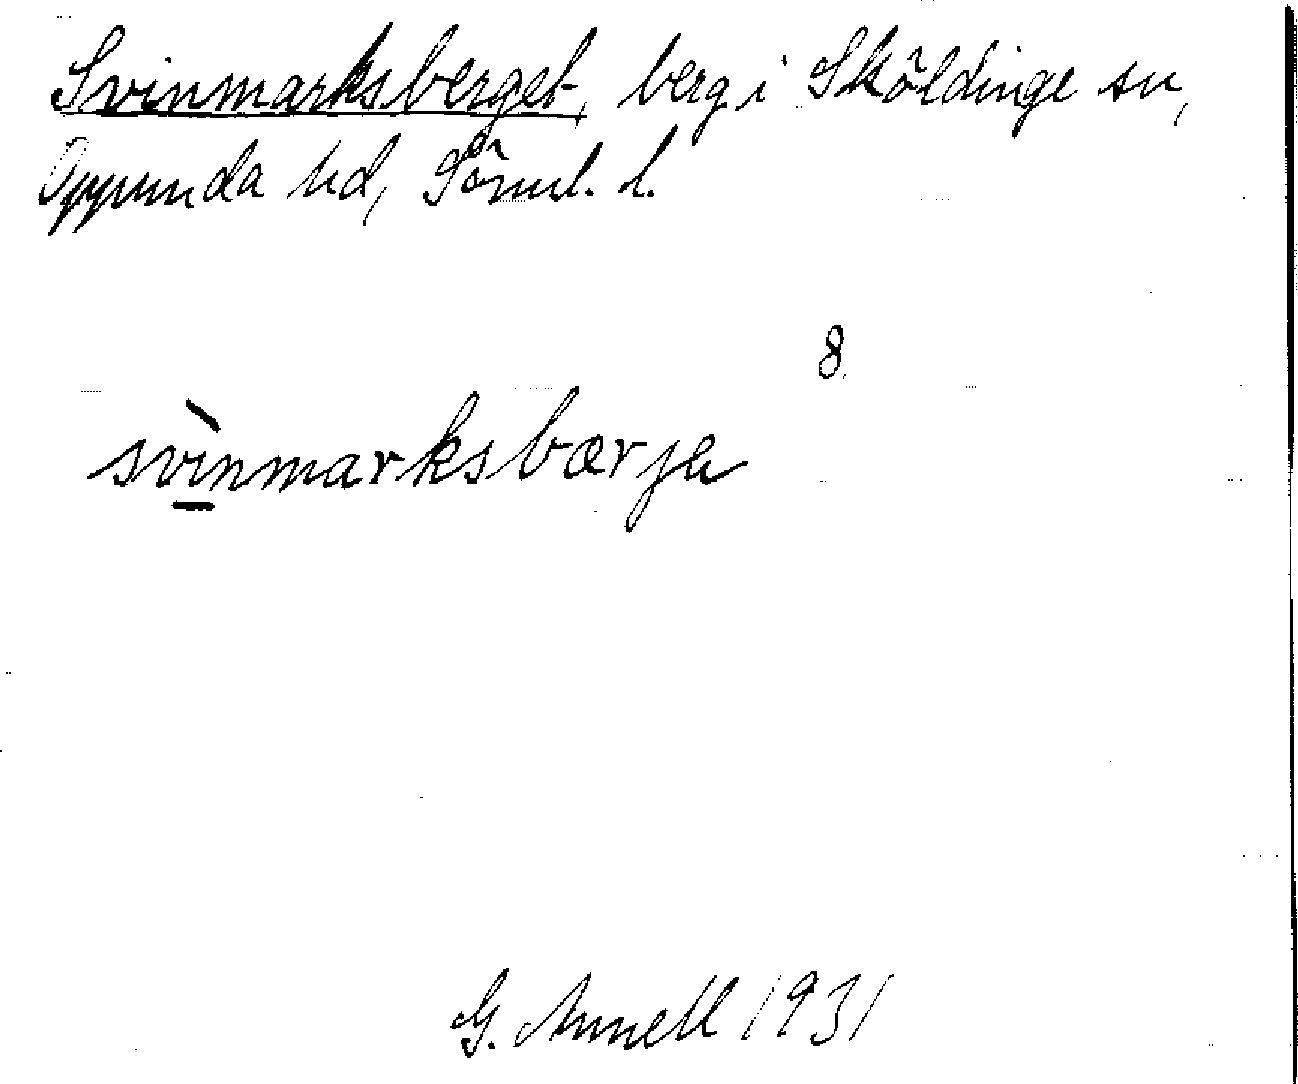 Svinmarksberget, berg i Sköldinge sn,
Oppunda hd, Söml. l.
8.
svìnmarksbærjɐ
G. Annell 1931